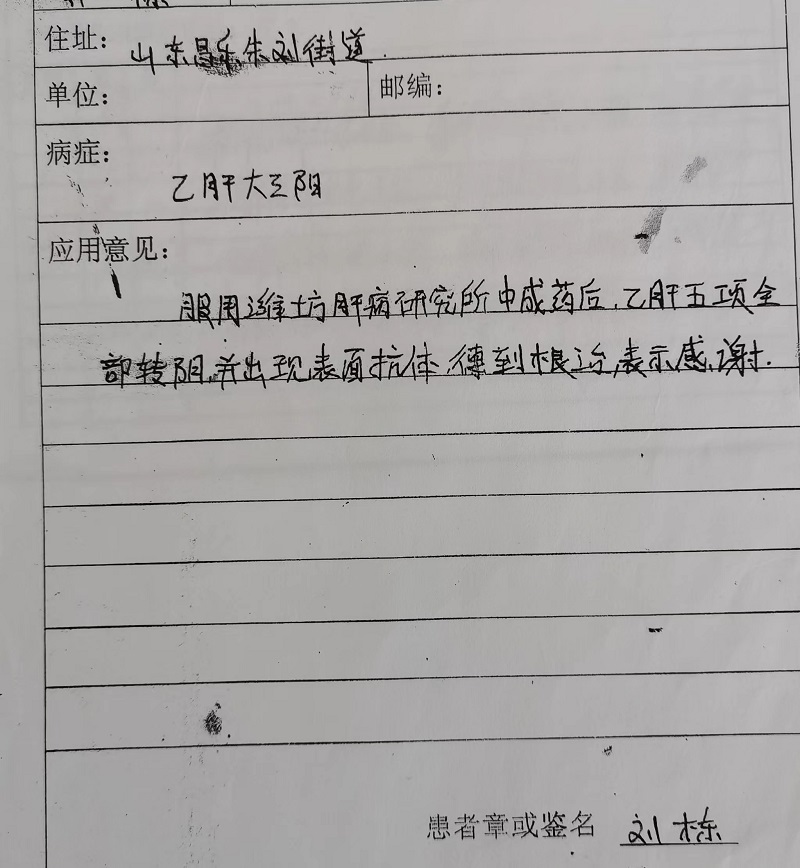 住址：山东昌乐朱刘街道.
单位： 邮编：
病症：
乙肝大三阳
应用意见：
服用潍坊肝病研究所中成药后,乙肝五项全
部转阴,并出现表面抗体,得到根治,表示感谢.
患者章或鉴名 刘栋